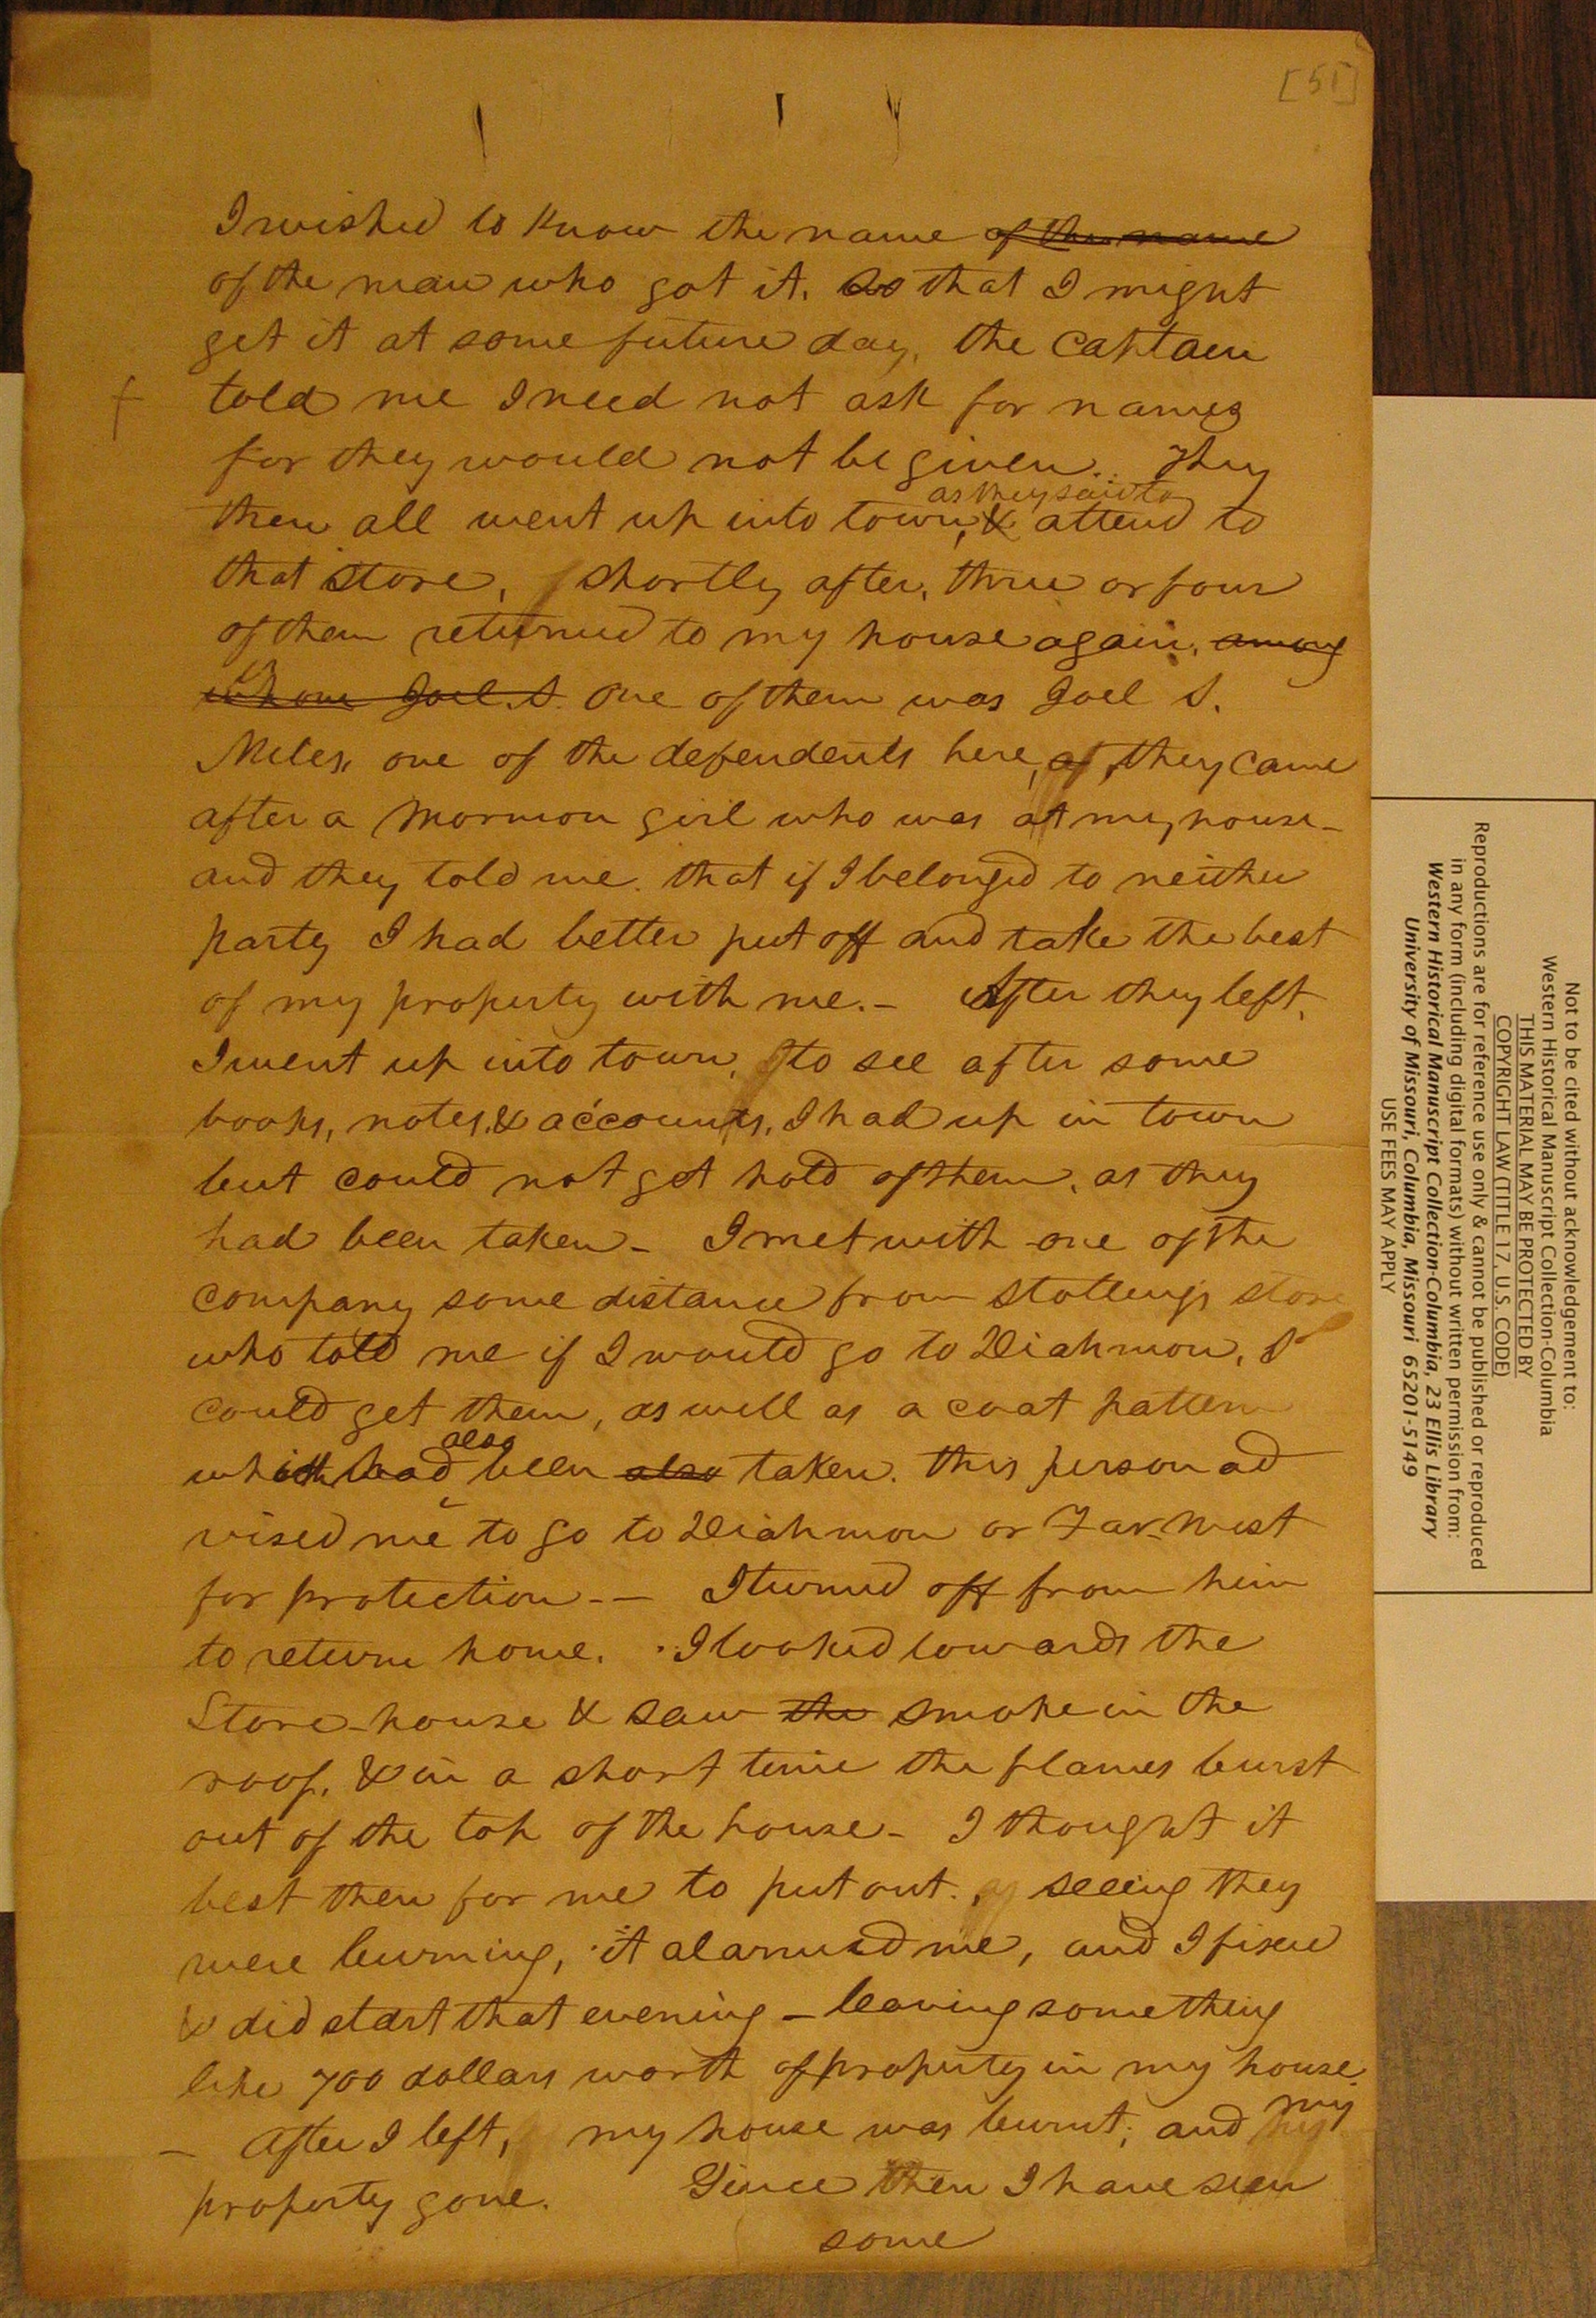 [51]
I wished to know the name of the name
of the man who got it. so that I might
get it at some future day, the Captain
told me I need not ask for names
for they would not be given. They
as they said to
then all went up into town, & attend to
that store, shortly after, three or four
of them returned to my house again, among
whom Joel. S. One of them was Joel S.
Miles, one of the defendents here, they came
after a Mormon girl who was at my house -
and they told me. that if I belonged to neither
party I had better put off and take the best
of my property with me. - After they left,
I went up into town, to see after some
books, notes, & accounts, I had up in town
but could not get hold of them, as they
had been taken - I met with one of the
company some distance from Stollings store
who told me if I would go to Diahmon, I
could get them, as well as a coat pattern
also
which had been also taken. this person ad
vised me to go to Diahmon or Far West
for protection - - I turned off from him
to return home. I looked towards the
Store-house & saw the smoke in the
roof, & in a short time the flames burst
out of the top of the house - I thought it
best then for me to put out. seeing they
were burning, it alarmed me, and I fixed
& did start that evening - leaving something
like 700 dollars worth of property in my house.
- After I left, my house was burnt; and my
property gone. Since then I have seen
some
Not to be cited without acknowledgement to:
Western Historical Manuscript Collection-Columbia
THIS MATERIAL MAY BE PROTECTED BY
COPYRIGHT LAW (TITLE 17, U.S. CODE)
Reproductions are for reference use only & cannot be published or reproduced
in any form (including digital formats) without written permission from:
Western Historical Manuscript Collection-Columbia, 23 Ellis Library
University of Missouri, Columbia, Missouri 65201-5149
USE FEES MAY APPLY